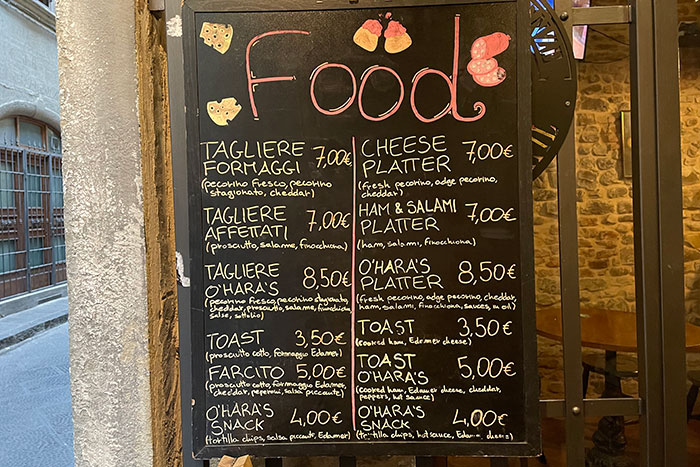 Food
TAGLIERE
FORMAGGI 7,00€
(pecorino fresco, pecorino
stagionato, cheddar)
TAGLIERE
AFFETTATI 7,00€
(prosciutto, salame, finocchiona)
TAGLIERE
O'HARA'S 8,50€
(pecorino fresco, pecorino stagionato,
cheddar, prosciutto, salame, finocchiona
salse, sottolio)
TOAST 3,50€
(prosciutto cotto, formaggio Edamer)
FARCITO 5,00€
(prosciutto cotto, formaggio Edamer,
cheddar, peperoni, salsa piccante)
O'HARA'S
SNACK 4,00€
(tortilla chips, salsa piccante, Edamer)
CHEESE
PLATTER 7,00€
(fresh pecorino, adge pecorino,
cheddar)
HAM & SALAMI
PLATTER 7,00€
(ham, salami, finocchiona)
O'HARA'S
PLATTER 8,50€
(fresh pecorino, adge pecorino, cheddar,
ham, salami, finocchiona, sauces, in oil)
TOAST 3,50€
(cooked ham, Edamer cheese)
TOAST
O'HARA'S 5,00€
(cooked ham, Edamer cheese, cheddar,
peppers, hot sauce)
O'HARA'S
SNACK 4,00€
(tortilla chips, hot sauce, Edamer cheese)